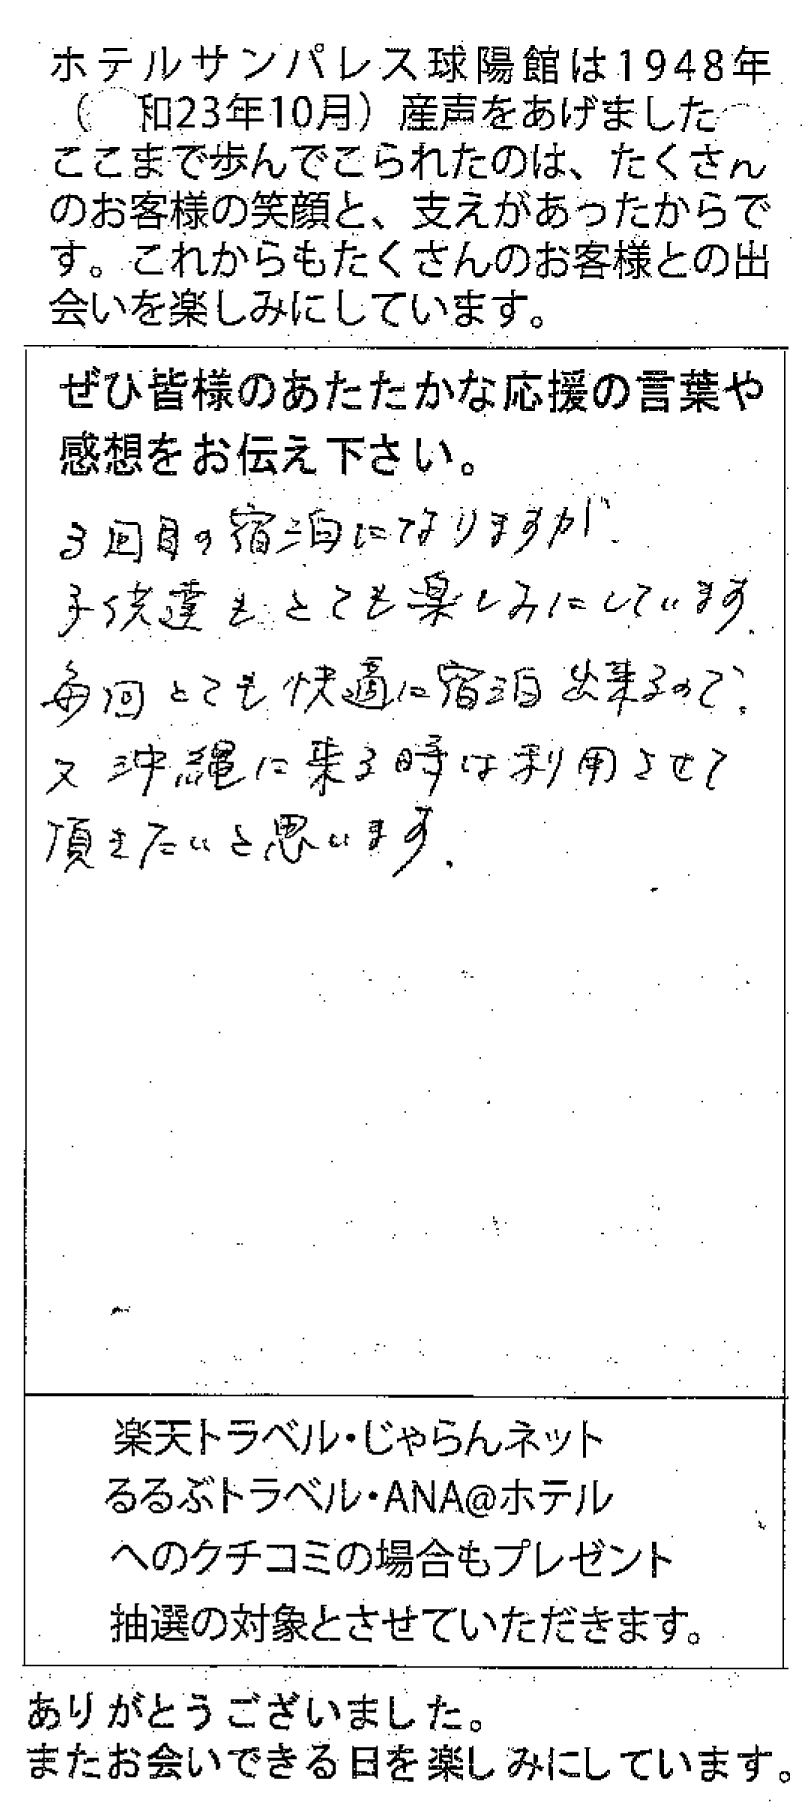 ホテルサンパレス球陽館は1948年
（ 和23年10月）産声をあげました
ここまで歩んでこられたのは、たくさん
のお客様の笑顔と、支えがあったからで
す。これからもたくさんのお客様との出
会いを楽しみにしています。
ぜひ皆様のあたたかな応援の言葉や
感想をお伝え下さい。
3回目の宿泊になりますが、
子供達もとても楽しみにしています。
毎回とても快適に宿泊出来るので、
又沖縄に来る時は利用させて
頂きたいと思います。
楽天トラベル・じゃらんネット
るるぶトラベル・ANA@ホテル
へのクチコミの場合もプレゼント
抽選の対象とさせていただきます。
ありがとうございました。
またお会いできる日を楽しみにしています。